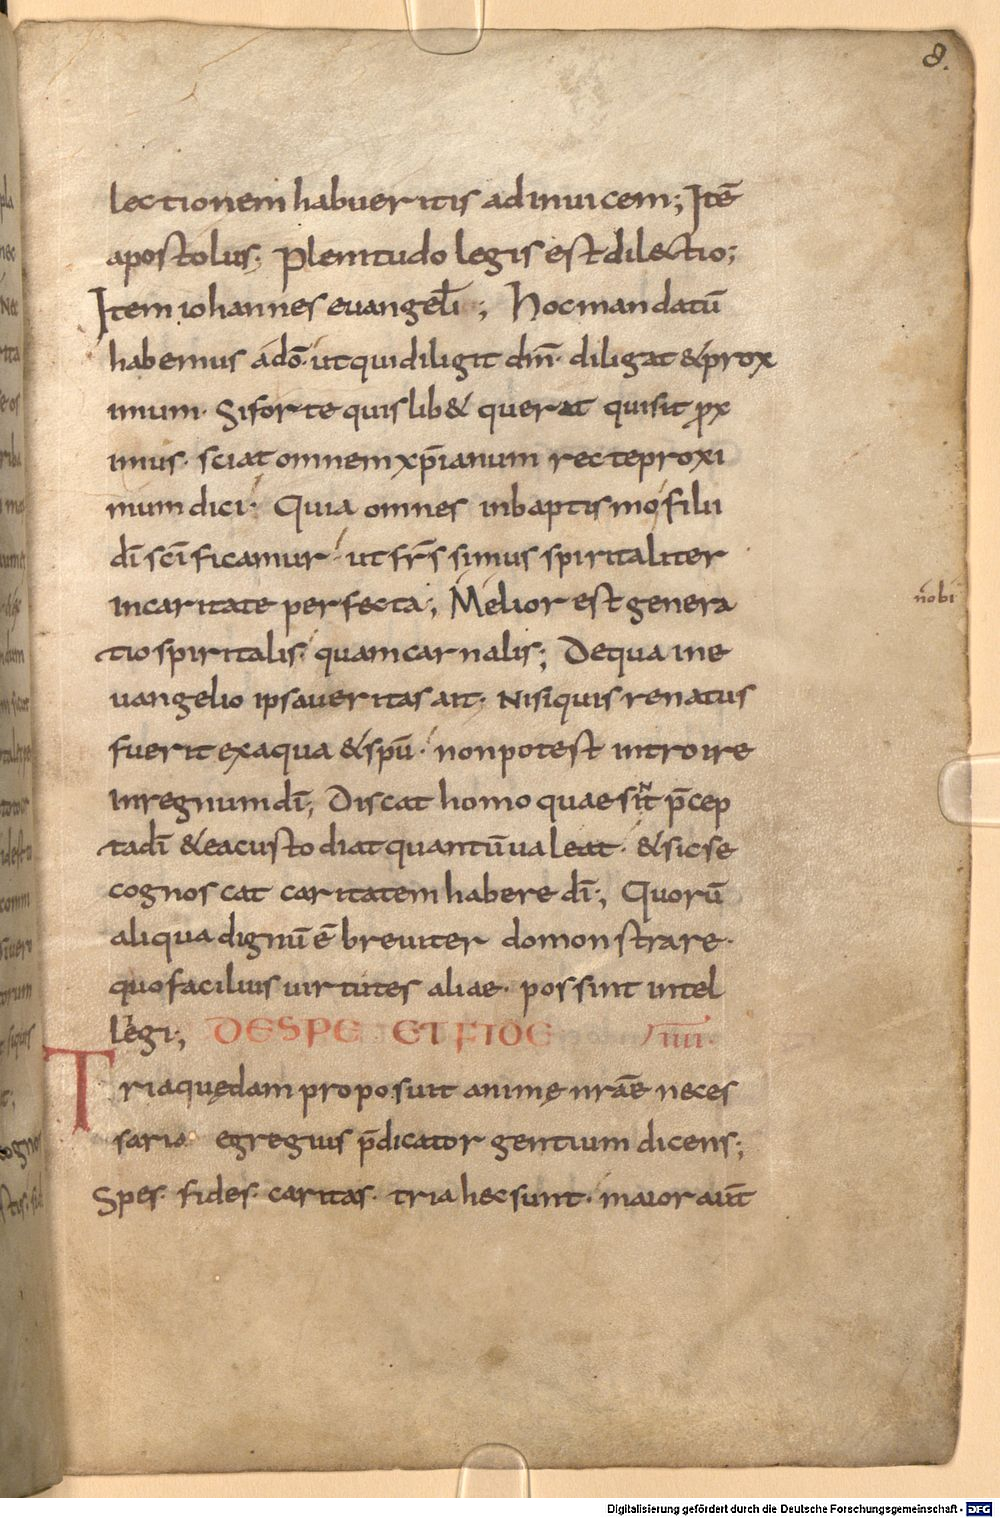 8.
lectionem habueritis adinuicem; Itē
apostolus; Plenitudo legis est dilectio;
Item iohannes euangeł̄i; Hoc mandatū
habemus ado͞ · ut qui diligit dm̄ · diligat & prox
imum · Si forte quislib& querat quis sit prox
imus · sciat omnem xp̄ianum recte proxi
mum dici · Quia omnes inbaptismo filii
dī sc̄ificamur · ut fr̄s simus spiritaliter
incaritate perfecta; Melior est genera
nobī
tio spiritalis · quam carnalis; De qua in e
uangelio ipsa ueritas ait · Nisi quis renatus
fuerit ex aqua & spū · non potest introire
in regnum dī; Discat homo quae sint p̄cep
ta dī & ea custodiat quantū ualeat · & sic se
cognoscat caritatem habere dī; Quorū
aliqua dignū ē breuiter domonstrare ·
quo facilius uirtutes aliae · possint intel
legi; DE SPE ET FIDE IIII ·
Tria quędam proposuit animę nrāe neces
saria egregius p̄dicator gentium dicens;
Spes · fides · caritas · tria hec sunt · maior aūt
Digitalisierung gefördert durch die Deutsche Forschungsgemeinschaft - DFG